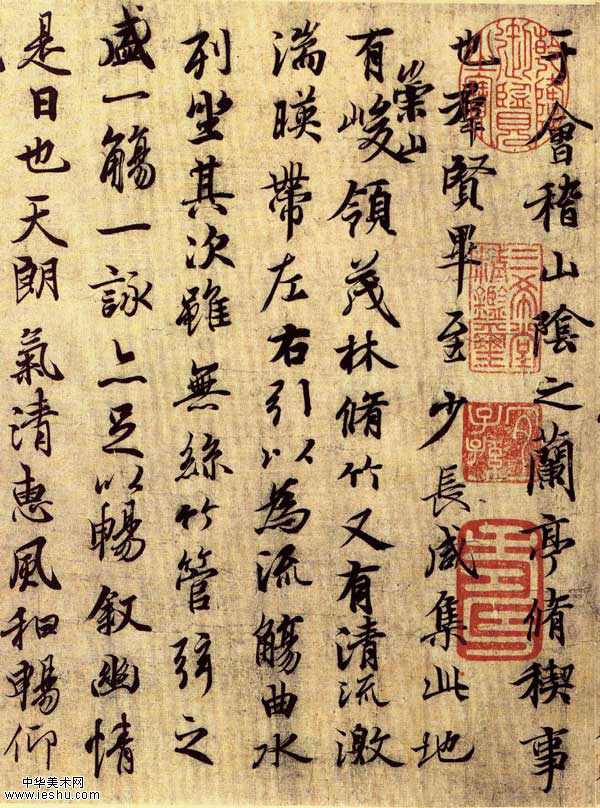 于會稽山陰之蘭亭脩稧事
也羣賢畢至少長咸集此地
有崇山峻領茂林脩竹又有清流激
湍暎帶左右引以為流觴曲水
列坐其次雖無絲竹管弦之
盛一觴一詠亦足以暢敘幽情
是日也天朗氣清惠風和暢仰
三希堂精鑑璽
宜子孫
中华美术网
www.ieshu.com